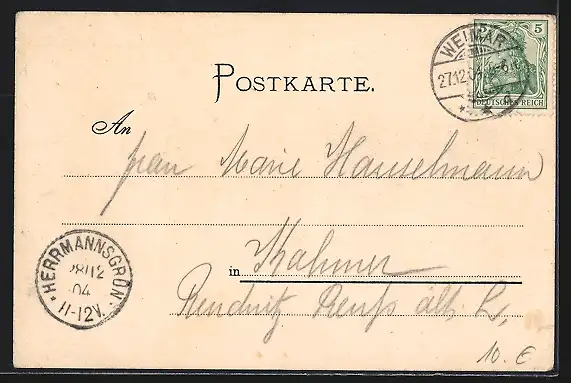 WEIMAR
27.12.04
5
DEUTSCHES REICH
POSTKARTE.
An
Frau Marie Hanselmann
in Kahmer
Reuß ält. L.,
HERRMANNSGRÜN
28/12
04
11-12V.
10.€